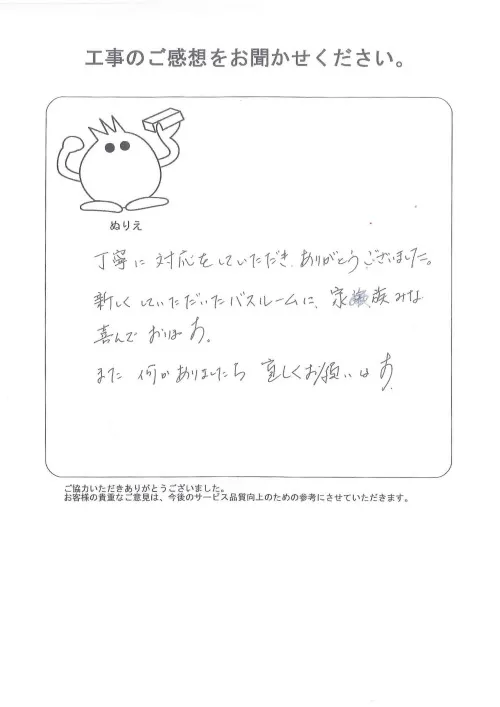 工事のご感想をお聞かせください。
ぬりえ
丁寧に対応をしていただき、ありがとうございました。
新しくしていただいたバスルームに、家族みな
喜んでおります。
また何かありましたら宜しくお願いします
ご協力いただきありがとうございました。
お客様の貴重なご意見は、今後のサービス品質向上のための参考にさせていただきます。